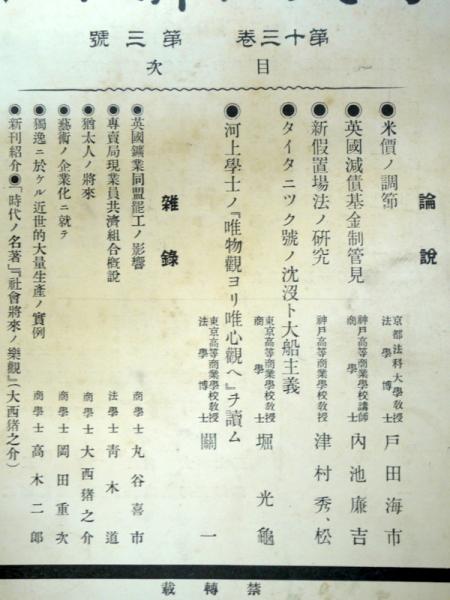 第十三卷 第三號
目次
論說
◉米價ノ調節 京都法科大學教授 法學博士 戶田海市
◉英國減債基金制管見 神戶高等商業學校講師 商學士 內池廉吉
◉新假置場法ノ硏究 神戶高等商業學校教授 津村秀松
◉タイタニツク號ノ沈沒ト大船主義 東京高等商業學校教授 商學士 堀光龜
◉河上學士ノ『唯物觀ヨリ唯心觀ヘ』ヲ讀ム 東京高等商業學校教授 法學博士 關一
雜錄
◉英國鑛業同盟罷工ノ影響 商學士 丸谷喜市
◉專賣局現業員共濟組合槪說 法學士 靑木道
◉猶太人ノ將來 商學士 大西猪之介
◉藝術ノ企業化ニ就テ 商學士 岡田重次
◉獨逸ニ於ケル近世的大量生產ノ實例 商學士 高木二郞
◉新刊紹介◉『時代ノ名著』『社會將來ノ樂觀』(大西猪之介)
禁轉載